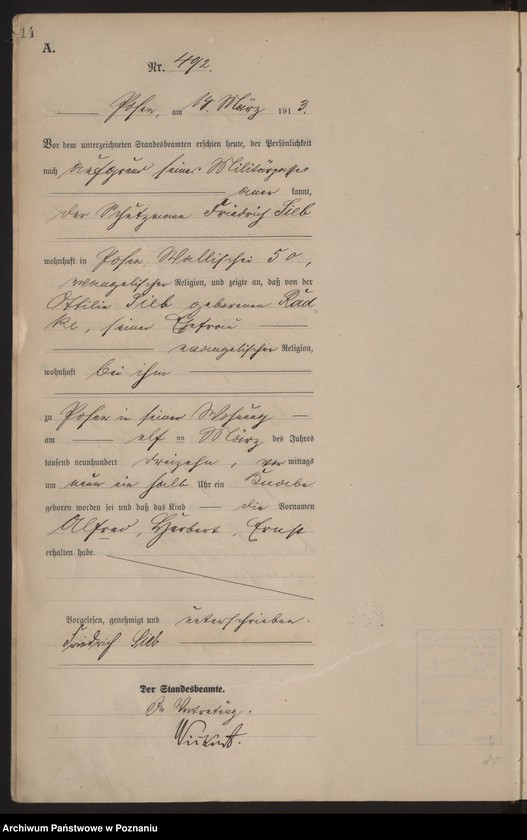 14
A.
Nr. 492.
Posen, am 14. März 1913.
Vor dem unterzeichneten Standesbeamten erschien heute, der Persönlichkeit
nach aufgrund seines Militärpasses
aner kannt,
der Schutzmann Friedrich Sieb
wohnhaft in Posen Wallischei 50,
evangelischer Religion, und zeigte an, daß von der
Ottilie Sieb geborenen Rad-
ke, seiner Ehefrau
evangelischer Religion,
wohnhaft bei ihm
zu Posen in seiner Wohnung
am elf ten März des Jahres
tausend neunhundert dreizehn, vor mittags
um neun ein halb Uhr ein Knabe
geboren worden sei und daß das Kind die Vornamen
Alfred, Herbert, Ernst
erhalten habe.
Vorgelesen, genehmigt und unterschrieben.
Friedrich Sieb
Der Standesbeamte.
In Vertretung.
Archiwum Państwowe w Poznaniu